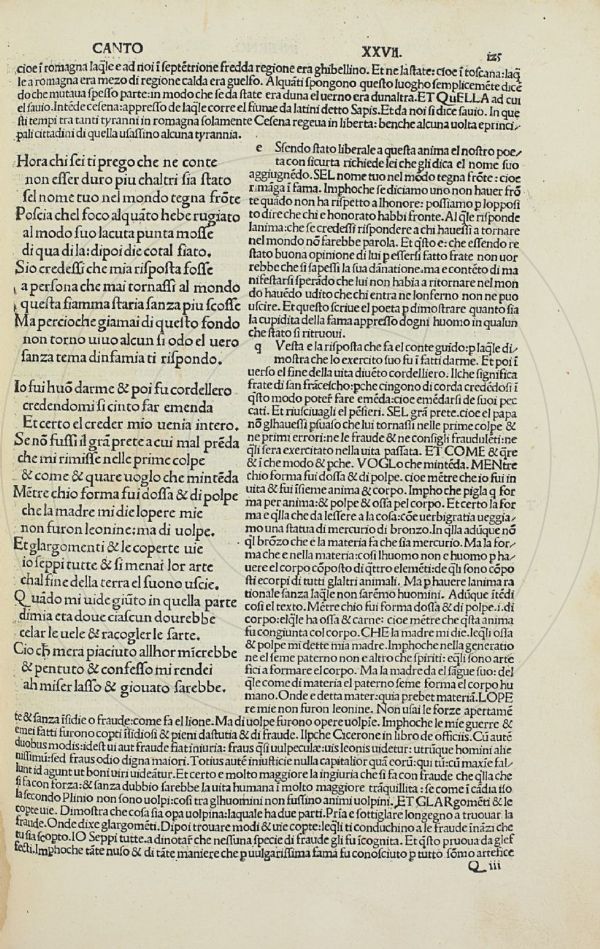 CANTO XXVII. 125
cioe ĩ romagna laq̃le e ad noi ĩ septẽtrione fredda regione era ghibellino. Et ne la state: cioe ĩ toscana: laq̃
le a romagna era mezo di regione calda era guelfo. Alquãti spongono questo luogho semplicemẽte dicẽ
do che mutaua spesso parte: in modo che se da state era duna el uerno era dunaltra. ET QuELLA ad cui
el sauio. Intẽde cesena: appresso de laq̃le corre el fiume da latini detto Sapis. Et da noi si dice sauio. In que
sti tempi tra tanti tyranni in romagna solamente Cesena regeua in liberta: benche alcuna uolta e princi-
pali cittadini di quella usassino alcuna tyrannia.
Hora chi sei ti prego che ne conte
non esser duro piu chaltri sia stato
sel nome tuo nel mondo tegna frõte
Poscia chel foco alquãto hebe rugiato
al modo suo lacuta punta mosse
di qua di la: dipoi die cotal fiato.
Sio credessi che mia risposta fosse
a persona che mai tornassi al mondo
questa fiamma staria sanza piu scosse
Ma percioche giamai di questo fondo
non torno uiuo alcun si odo el uero
sanza tema dinfamia ti rispondo.
Io fui huõ darme & poi fu cordellero
credendomi si cinto far emenda
Et certo el creder mio uenia intero.
Se nõ fussi il grã prete a cui mal prẽda
che mi rimisse nelle prime colpe
& come & quare uoglo che mintẽda
Mẽtre chio forma fui dossa & di polpe
che la madre mi die lopere mie
non furon leonine: ma di uolpe.
Et glargomenti & le coperte uie
io seppi tutte & si menai lor arte
chal fine della terra el suono uscie.
Quãdo mi uide giũto in quella parte
dimia eta doue ciascun dourebbe
celar le uele & racogler le sarte.
Cio che mera piaciuto allhor mĩcrebbe
& pentuto & confesso mi rendei
ah miser lasso & giouato sarebbe.
e Ssendo stato liberale a questa anima el nostro poe-
ta con sicurta richiede lei che gli dica el nome suo
aggiugnẽdo. SEL nome tuo nel mõdo tegna frõte: cioe
rimãga ĩ fama. Imphoche se diciamo uno non hauer frõ
te quãdo non ha rispetto a lhonore: possiamo p lopposi
to dire che chi e honorato habbi fronte. Al q̃le risponde
lanima: che se credessi rispondere a chi hauessi a tornare
nel mondo nõ farebbe parola. Et q̃sto e: che essendo re
stato buona opinione di lui p essersi fatto frate non uor
rebbe che si sapessi la sua dãnatione. ma e contẽto di ma
nifestarsi sperãdo che lui non habia a ritornare nel mon
do hauẽdo udito che chi entra ne lonferno non ne puo
uscire. Et questo scriue el poeta p dimostrare quanto sia
la cupidita della fama appresso dogni huomo in qualun
che stato si ritruoui.
q Vesta e la risposta che fa el conte guido: p laq̃le di-
mostra che lo exercito suo fu ĩ fatti darme. Et poi ĩ
uerso el fine della uita diuẽto cordelliero. Il che significa
frate di san frãcescho: pche cingono di corda credẽdosi ĩ
q̃sto modo poter fare emẽda: cioe emẽdarsi de suoi pec
cati. Et riusciuagli el pẽsieri. SEL grã prete. cioe el papa
nõ glhauessi psuaso che lui tornassi nelle prime colpe &
ne primi errori: ne le fraude & ne consigli fraudulẽti: ne
q̃li sera exercitato nella uita passata. ET COME & q̃re
& ĩ che modo & pche. VOGLO che mintẽda. MENtre
chio forma fui dossa & di polpe. cioe mẽtre che io fui in
uita & fui ĩsieme anima & corpo. Imphoche pigla q̃ for
ma per anima: & polpe & ossa pel corpo. Et certo la for
ma e q̃lla che da lessere a la cosa: cõe uerbigratia ueggia-
mo una statua di mercurio di bronzo. In q̃lla adũque nõ
q̃l brõzo che e la materia fa che sia mercurio. Ma la for-
ma che e nella materia: cosi lhuomo non e huomo p ha-
uere el corpo cõposto di q̃ttro elemẽti: de q̃li sono cõpo
sti e corpi di tutti glaltri animali. Ma p hauere lanima ra
tionale sanza laq̃le non sarẽmo huomini. Adũque ĩtẽdi
cosi el texto. Mẽtre chio fui forma dossa & di polpe. i. di
corpo: elq̃le ha ossa & carne: cioe mẽtre che q̃sta anima
fu congiunta col corpo. CHE la madre mi die. leq̃li ossa
& polpe mi dette mia madre. Imphoche nella generatio
ne el seme paterno non e altro che spiriti: eq̃li sono arte
fici a formare el corpo. Ma la madre da el sãgue suo: del
q̃le come di materia el paterno seme forma el corpo hu
mano. Onde e detta mater: quia prebet materiã. LOPE
re mie non furon leonine. Non usai le forze apertamẽ
te & sanza ĩsidie o fraude: come fa el lione. Ma di uolpe furono opere uolpĩe. Imphoche le mie guerre &
emei fatti furono copti ĩsidiosi & pieni dastutia & di fraude. Ilpche Cicerone in libro de officiis. Cũ autẽ
duobus modis: idest ui aut fraude fiat iniuria: fraus q̃si uulpeculæ: uis leonis uidetur: utrũque homini alie
nissimũ: sed fraus odio digna maiori. Totius autẽ iniusticie nulla capitalior quã eorũ: qui tũ: cũ maxĩe fal-
lunt id agunt ut boni uiri uideãtur. Et certo e molto maggiore la ingiuria che si fa con fraude che q̃lla che
si fa con forza: & sanza dubbio sarebbe la uita humana ĩ molto maggiore trãquillita: se come ĩ cãdia isso
la secondo Plinio non sono uolpi: cosi tra glhuomini non fussino animi uolpini. ET GLARgomẽti & le
copte uie. Dimostra che cosa sia opa uolpina: laquale ha due parti. Pria e sottiglare longegno a truouar la
fraude. Onde dixe glargomẽti. Dipoi trouare modi & uie copte: leq̃li ti conduchino a le fraude ĩnãzi che
tu sia scopto. IO Seppi tutte. a dinotar che nessuna specie di fraude gli fu ĩcognita. Et q̃sto pruoua da glef
fecti. Imphoche tãte nuso & di tãte maniere che p uulgarissima fama fu conosciuto p tutto sõmo artefice
Q iii